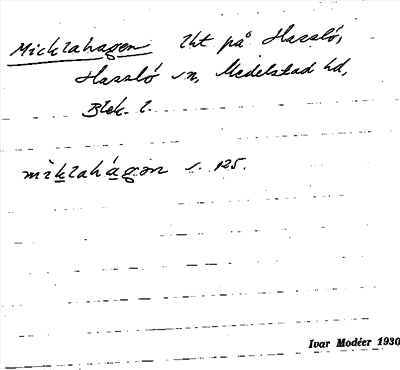 Micklahagen lht på Hasslö,
Hasslö sn, Medelstad hd,
Blek. l.
mìklahágen s. 125.
Ivar Modéer 1930